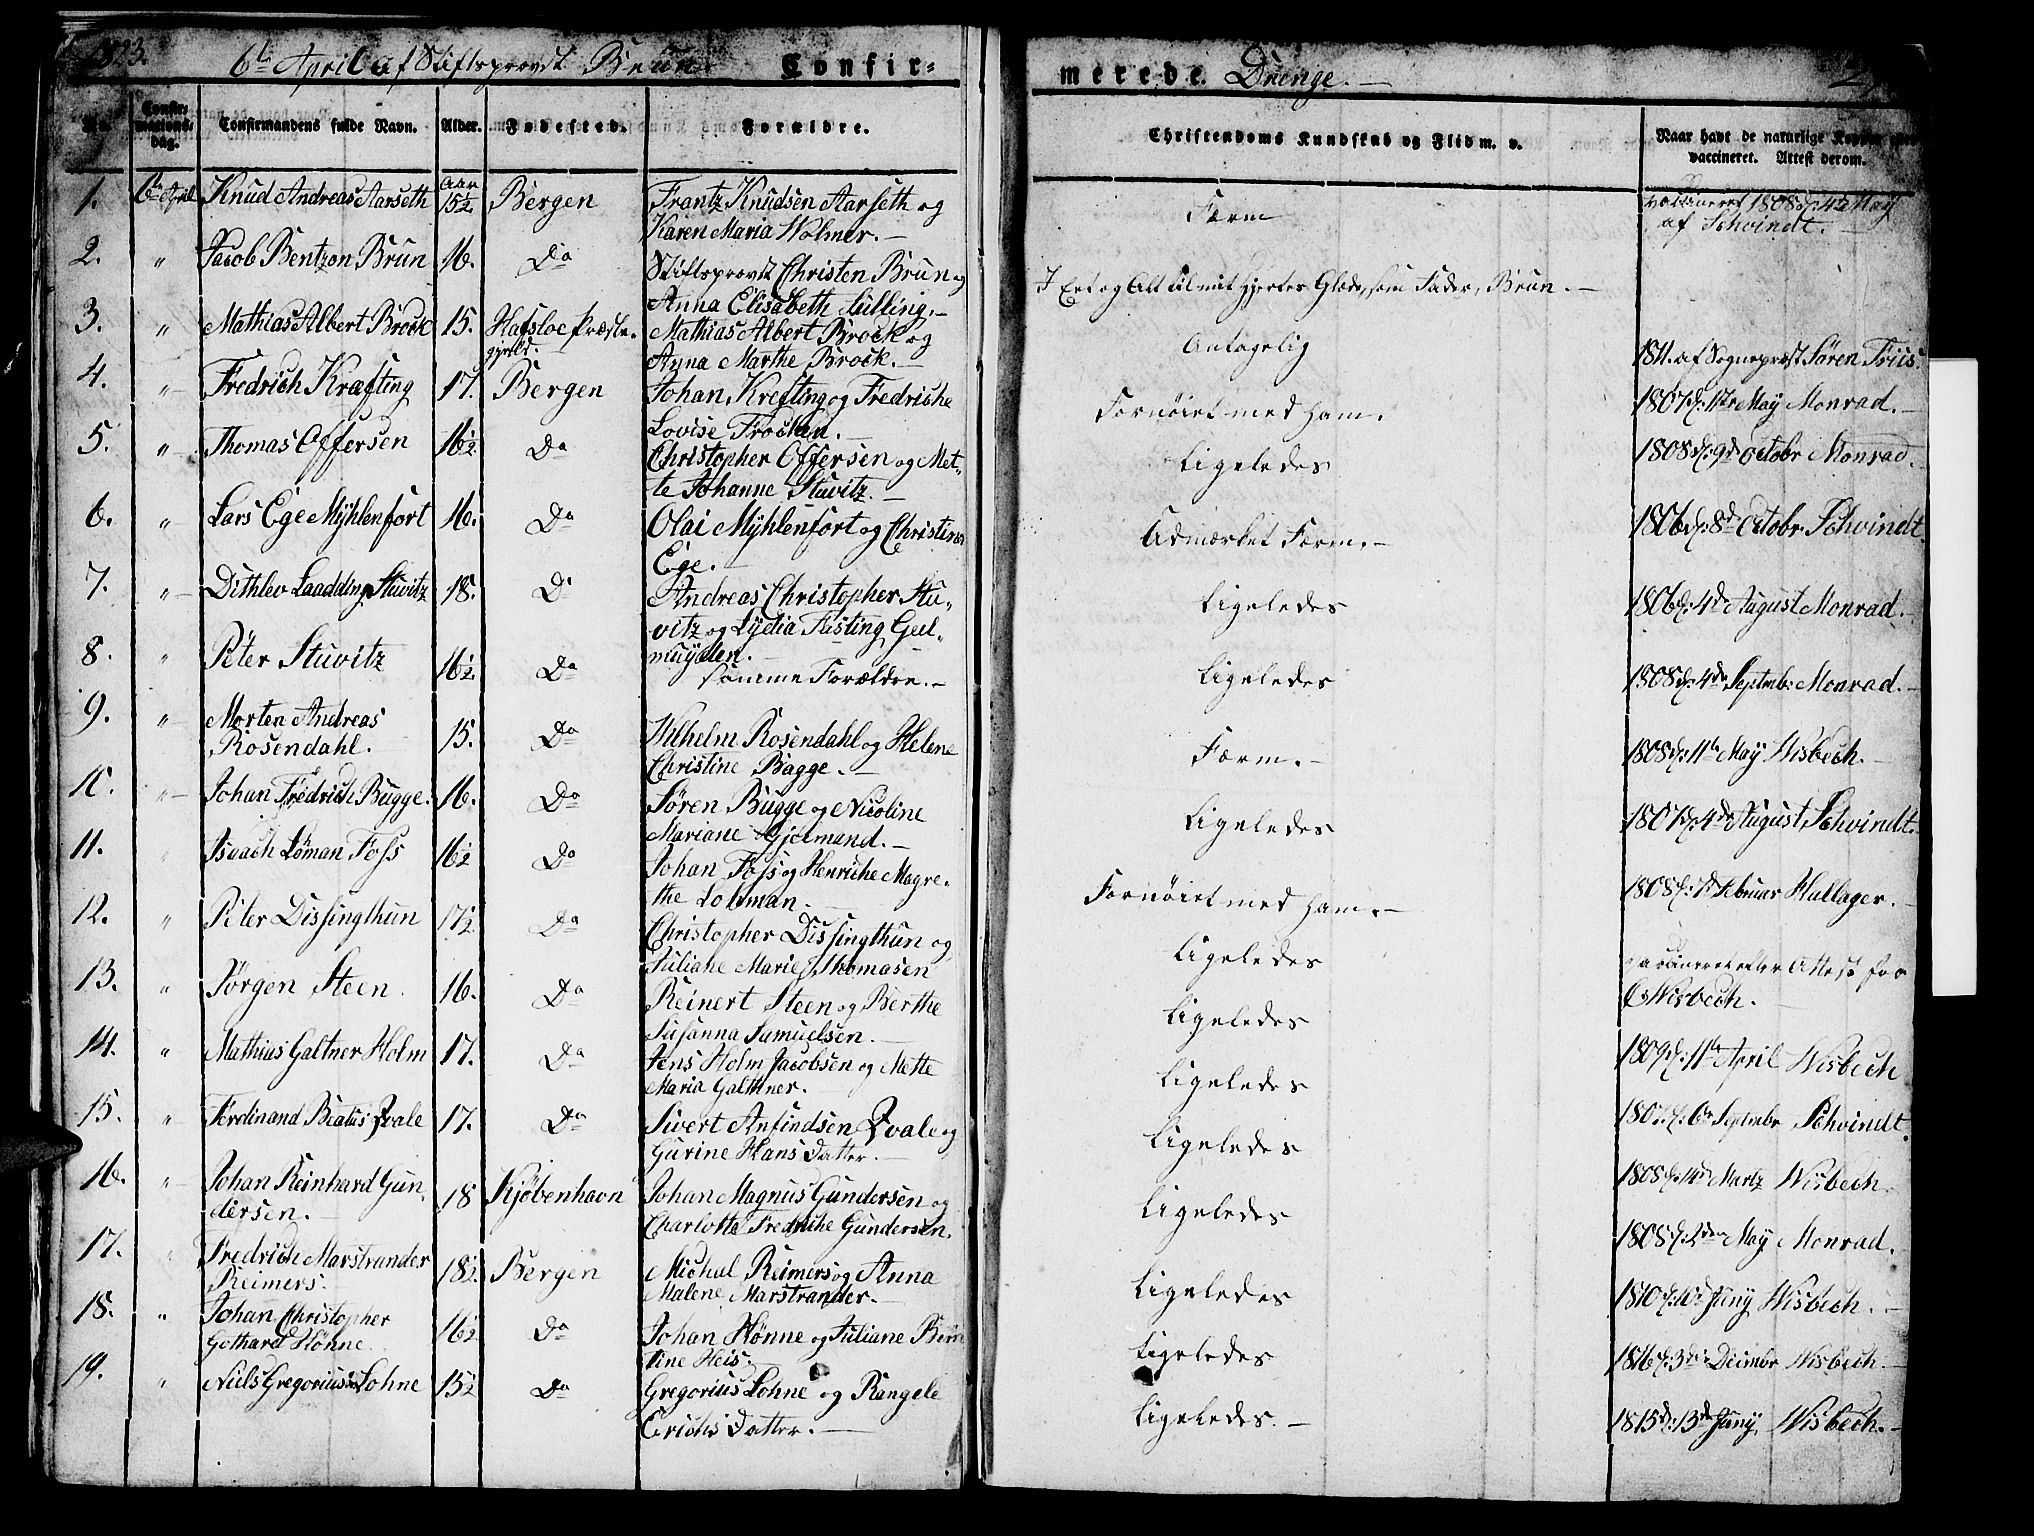 1823. 6te April af Stiftsprovst Brun. Confir-
merede Drenge.
No. Confirmations-dag. Confirmandens fulde Navn. Alder. Fødested. Forældre.
Christendoms Kundskab og Flid m. v. Naar havt de naturlige Kopper eller vaccineret. Attest derom.
1. 6te April Knud Andreas Aarseth Aar 15½ Bergen Frantz Knudsen Aarseth og
Karen Maria Wolmer.
Færm vaccineret 1808 d: 4de May
af Schvindt.
2. " Jacob Bentzon Brun 16. Do Stiftsprovst Christen Brun og
Anna Elisabeth Lulling.
I Et og Alt til mit Hjertes Glæde, som Fader, Brun.
3. " Mathias Albert Brock 15. Hafsloe Præste-
gjæld. Mathias Albert Brock og
Anna Marthe Brock.
Antagelig 1811. af Sognepræst Søren Friis.
4. " Fredrich Kræfting 17. Bergen Johan Krefting og Fredriche
Lovise Trochen.
Fornøiet med ham. 1807 d: 11te May Monrad.
5. " Thomas Offersen 16½ Do Christopher Offersen og Met-
te Johanne Stuvitz.
Ligeledes 1808 d: 9de Octobr Monrad.
6. " Lars Ege Myhlenfort 16. Do Olai Myhlenfort og Christina
Ege.
Udmærket Færm. 1806 d: 8de Octobr. Schvindt.
7. " Dithlev Laadding Stuvitz 18. Do Andreas Christopher Stu-
vitz og Lydia Fasting Geel-
muyden.
Ligeledes 1806 d: 4de August Monrad.
8. " Peter Stuvitz 16½ Do samme Forældre.
Ligeledes 1808 d: 4de Septmb: Monrad.
9. " Morten Andreas
Rosendahl. 15. Do Wilhelm Rosendahl og Helene
Christine Bagge.
Færm. 1808 d: 11te May Wisbech.
10. " Johan Fredrich Bugge. 16. Do Søren Bugge og Nicoline
Mariane Gjelmand.
Ligeledes 1807 d: 4de August Schvindt.
11. " Isaach Løman Foss 16½ Do Johan Foss og Henriche Magre-
the Lohman.
Fornøiet med ham. 1808 d: 7de Februar Hallager.
12. " Peter Dissingthun 17½ Do Christopher Dissingthun og
Juliane Marie Thomasen
Ligeledes vaccineret efter Attest fra
C. Wisbech.
13. " Jørgen Steen 16. Do Reinert Steen og Berthe
Susanna Samuelsen.
Ligeledes
14. " Mathias Galtner Holm 17. Do Jens Holm Jacobsen og Mette
Maria Galthner.
Ligeledes 1809 d: 11te April Wisbech
15. " Ferdinand Beatus Qvale 17. Do Sivert Anfindsen Qvale og
Gurine Hans Datter.
Ligeledes 1807 d: 6te Septmbr Schvindt.
16. " Johan Reinhard Gun-
dersen. 18 Kjøbenhavn Johan Magnus Gundersen og
Charlotte Fredriche Gundersen.
Ligeledes 1808 d: 14de Martz Wisbech.
17. " Fredrich Marstrander
Reimers. 18½ Bergen Michal Reimers og Anna
Malene Marstrander.
Ligeledes 1808 d: 2den May Monrad.
18. " Johan Christopher
Gothard Hønne. 16½ Do Johan Hønne og Juliane Bern
tine Heis.
Ligeledes 1810 d: 10de Juny Wisbech.
Ligeledes 1816 d: 3die Decmbr Wisbech.
19. " Niels Gregoriussen Lohne 15½ Do Gregorius Lohne og Rangele
Erichs Datter.
Ligeledes. 1815 d: 13de Juny Wisbech.